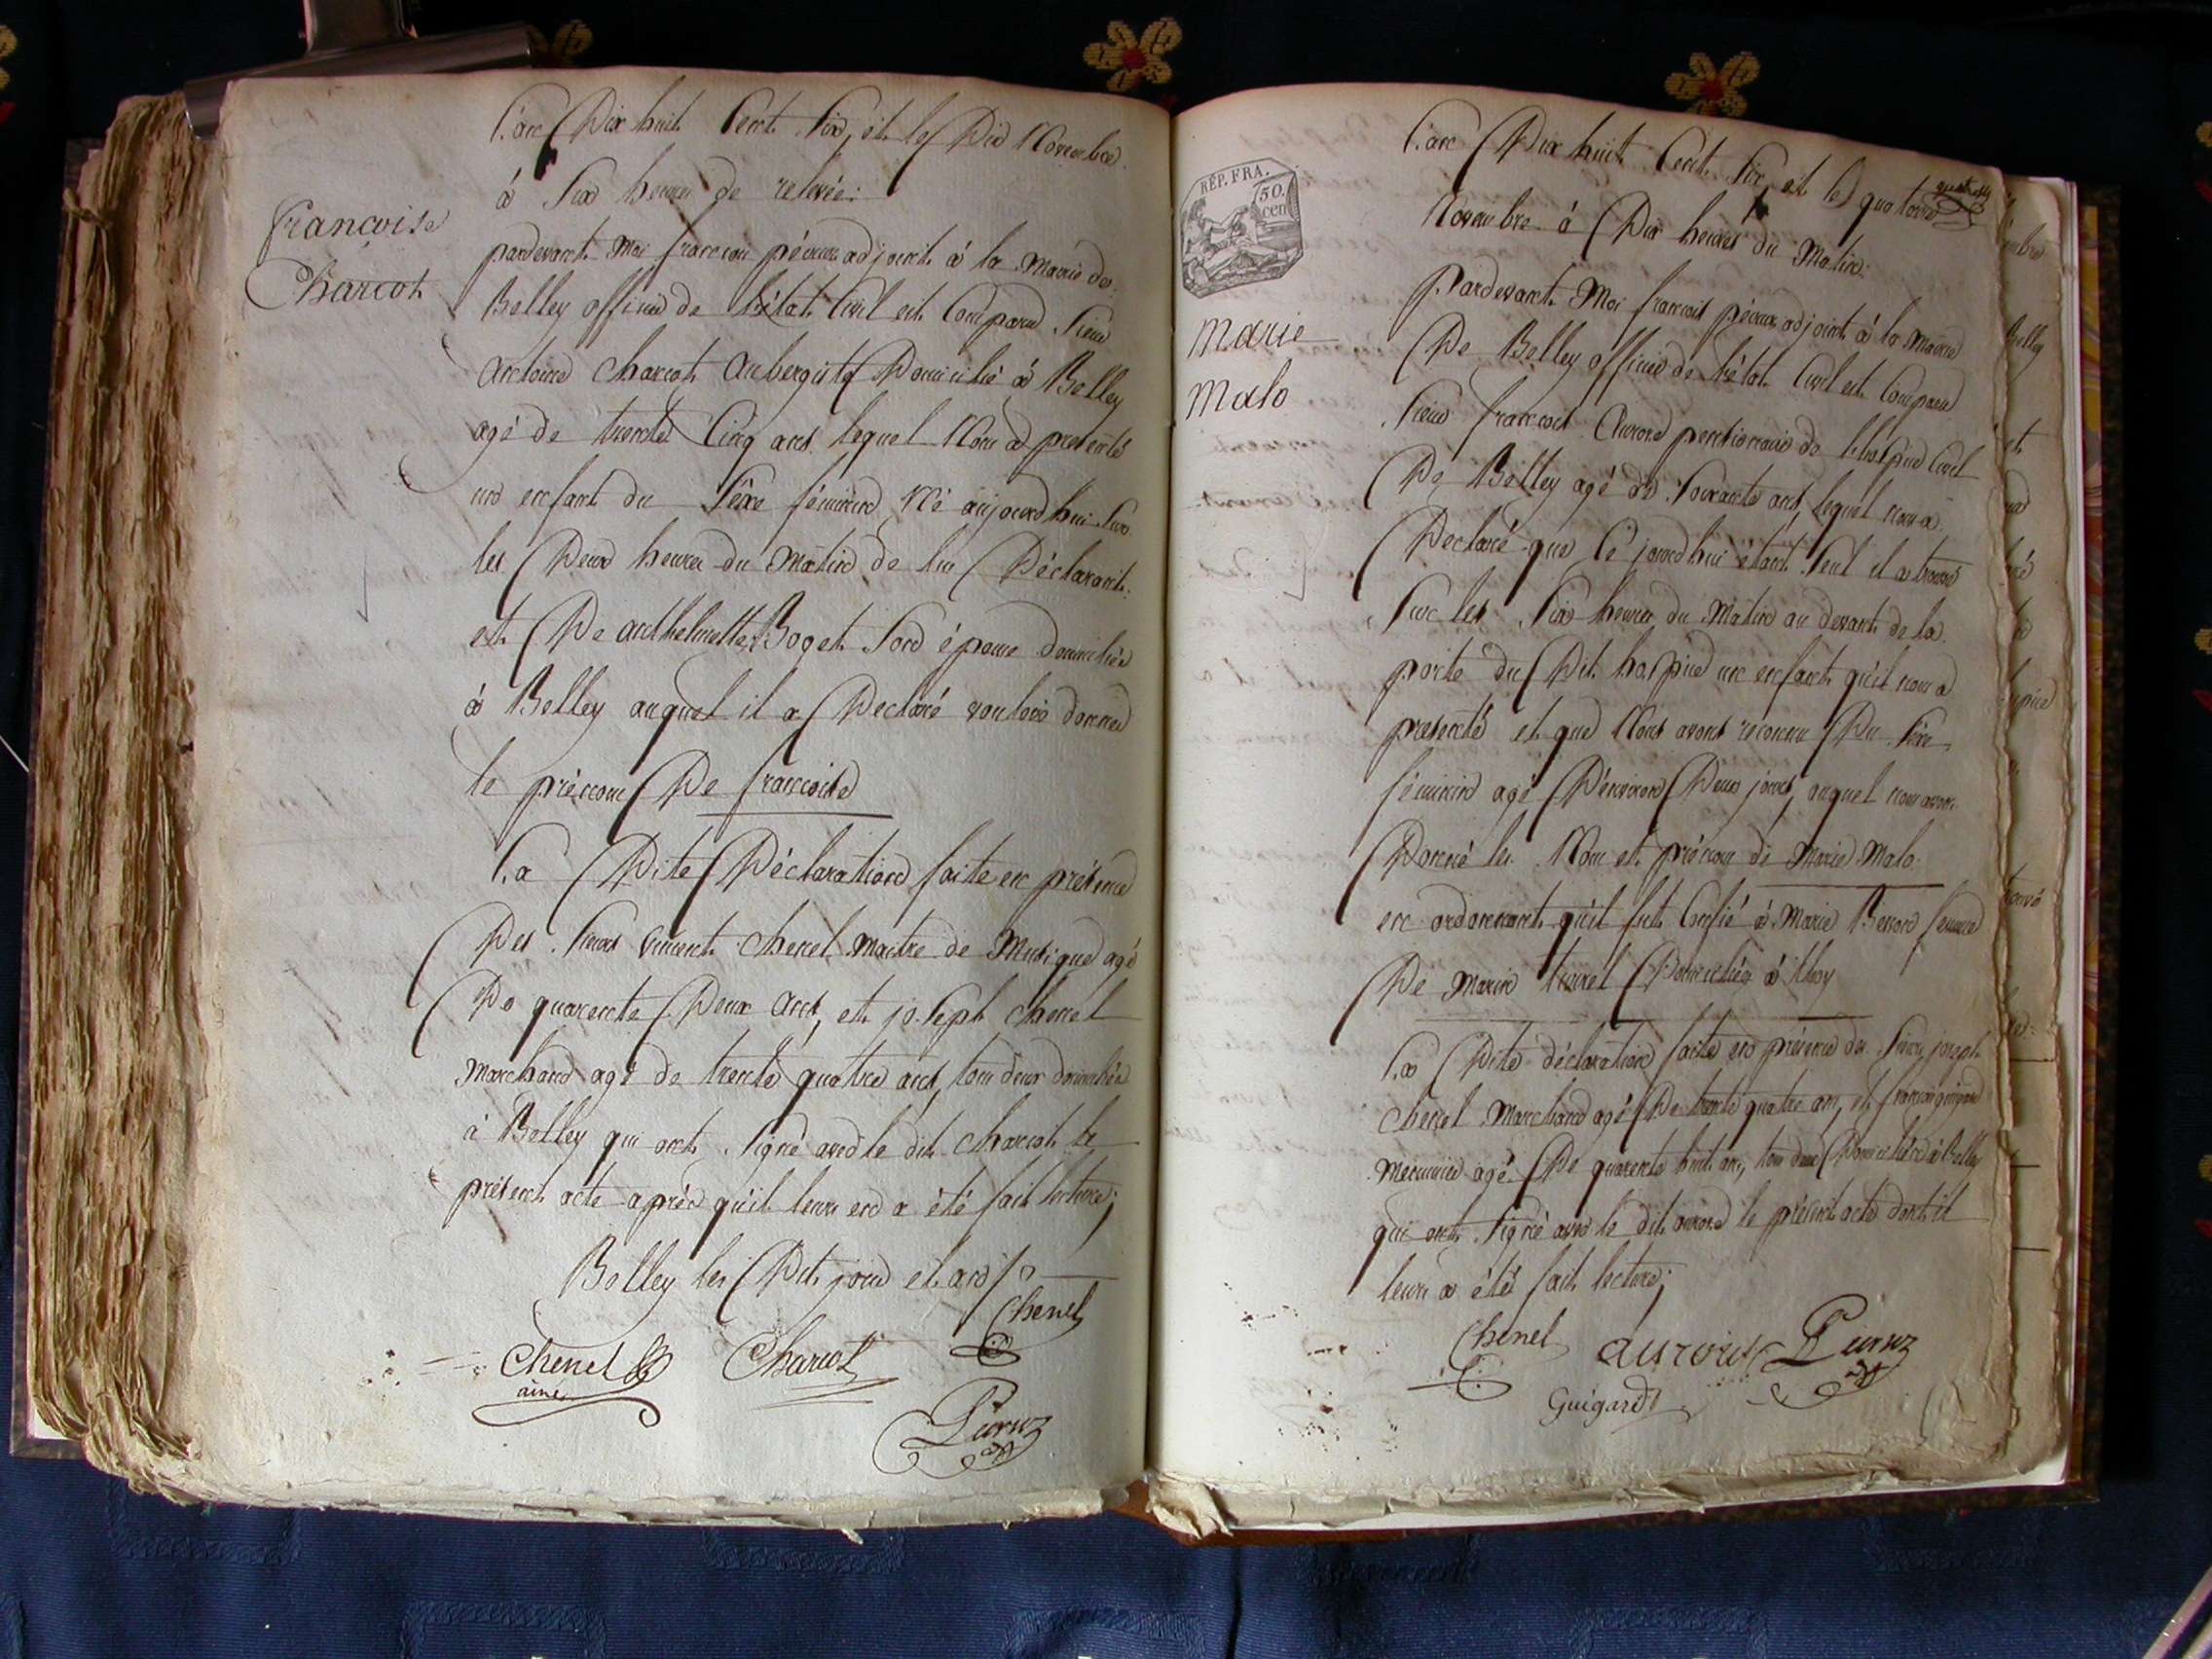 L'an Dix huit Cent Six, et le Dix Novembre
à Six heures de relevée:
françoise
Charcot
pardevant Moi françois péroux adjoint à la Mairie de
Belley officier de l'état Civil est Comparu Sieur
Antoine Charcot Aubergiste Domicilié à Belley
agé de trente Cinq ans lequel Nous a presenté
un enfant du Sexe féminin Né aujourd'hui Sur
les Deux heures du Matin de lui Déclarant
et De anthelmette Boget Son épouse domiciliée
à Belley auquel il a Declaré vouloir donner
le prénom De françoise
La Dite Déclaration faite en présence
Des Sieurs Vincent Chenel Maitre de Musique agé
De quarente Deux ans, et joseph Chenel
Marchand agé de trente quatre ans, tous deux domiciliés
à Belley qui ont Signé avec le dit Charcot le
présent acte après qu'il leurs en a été fait lecture;
Belley les Dit jour et an
Chenel
Chenel
ainé
Charcot
RÉP. FRA.
50.
cen
L'an Dix huit Cent Six, et le quatorze
Novembre à Dix heures du Matin:
Marie
Malo
Pardevant Moi françois péroux adjoint à la Mairie
De Belley officier de l'état Civil est Comparu
Sieur françois Aurore pensionnaire de l'hospice Civil
De Belley agé de Soixante ans, lequel nous a
Declaré que Ce jourd'hui étant Seul il a trouvé
Sur les Six heures du Matin au devant de la
porte du Dit hospice un enfant qu'il nous a
presenté et que Nous avons reconnu Du Sexe
féminin agé D'environ Deux jours, auquel nous avons
Donné les Nom et prénom de Marie Malo
en ordonnant qu'il fut Confié à Marie Berson femme
De Marin turrel Domiciliée à
La Dite déclaration faite en présence des Sieurs joseph
Chenel Marchand agé De trente quatre ans, et françois guigard
Menuisier agé De quarente huit ans, tous deux Domiciliés à Belley
qui ont Signé avec le dit aurore le présent acte dont il
leurs a été fait lecture;
Chenel
Guigard